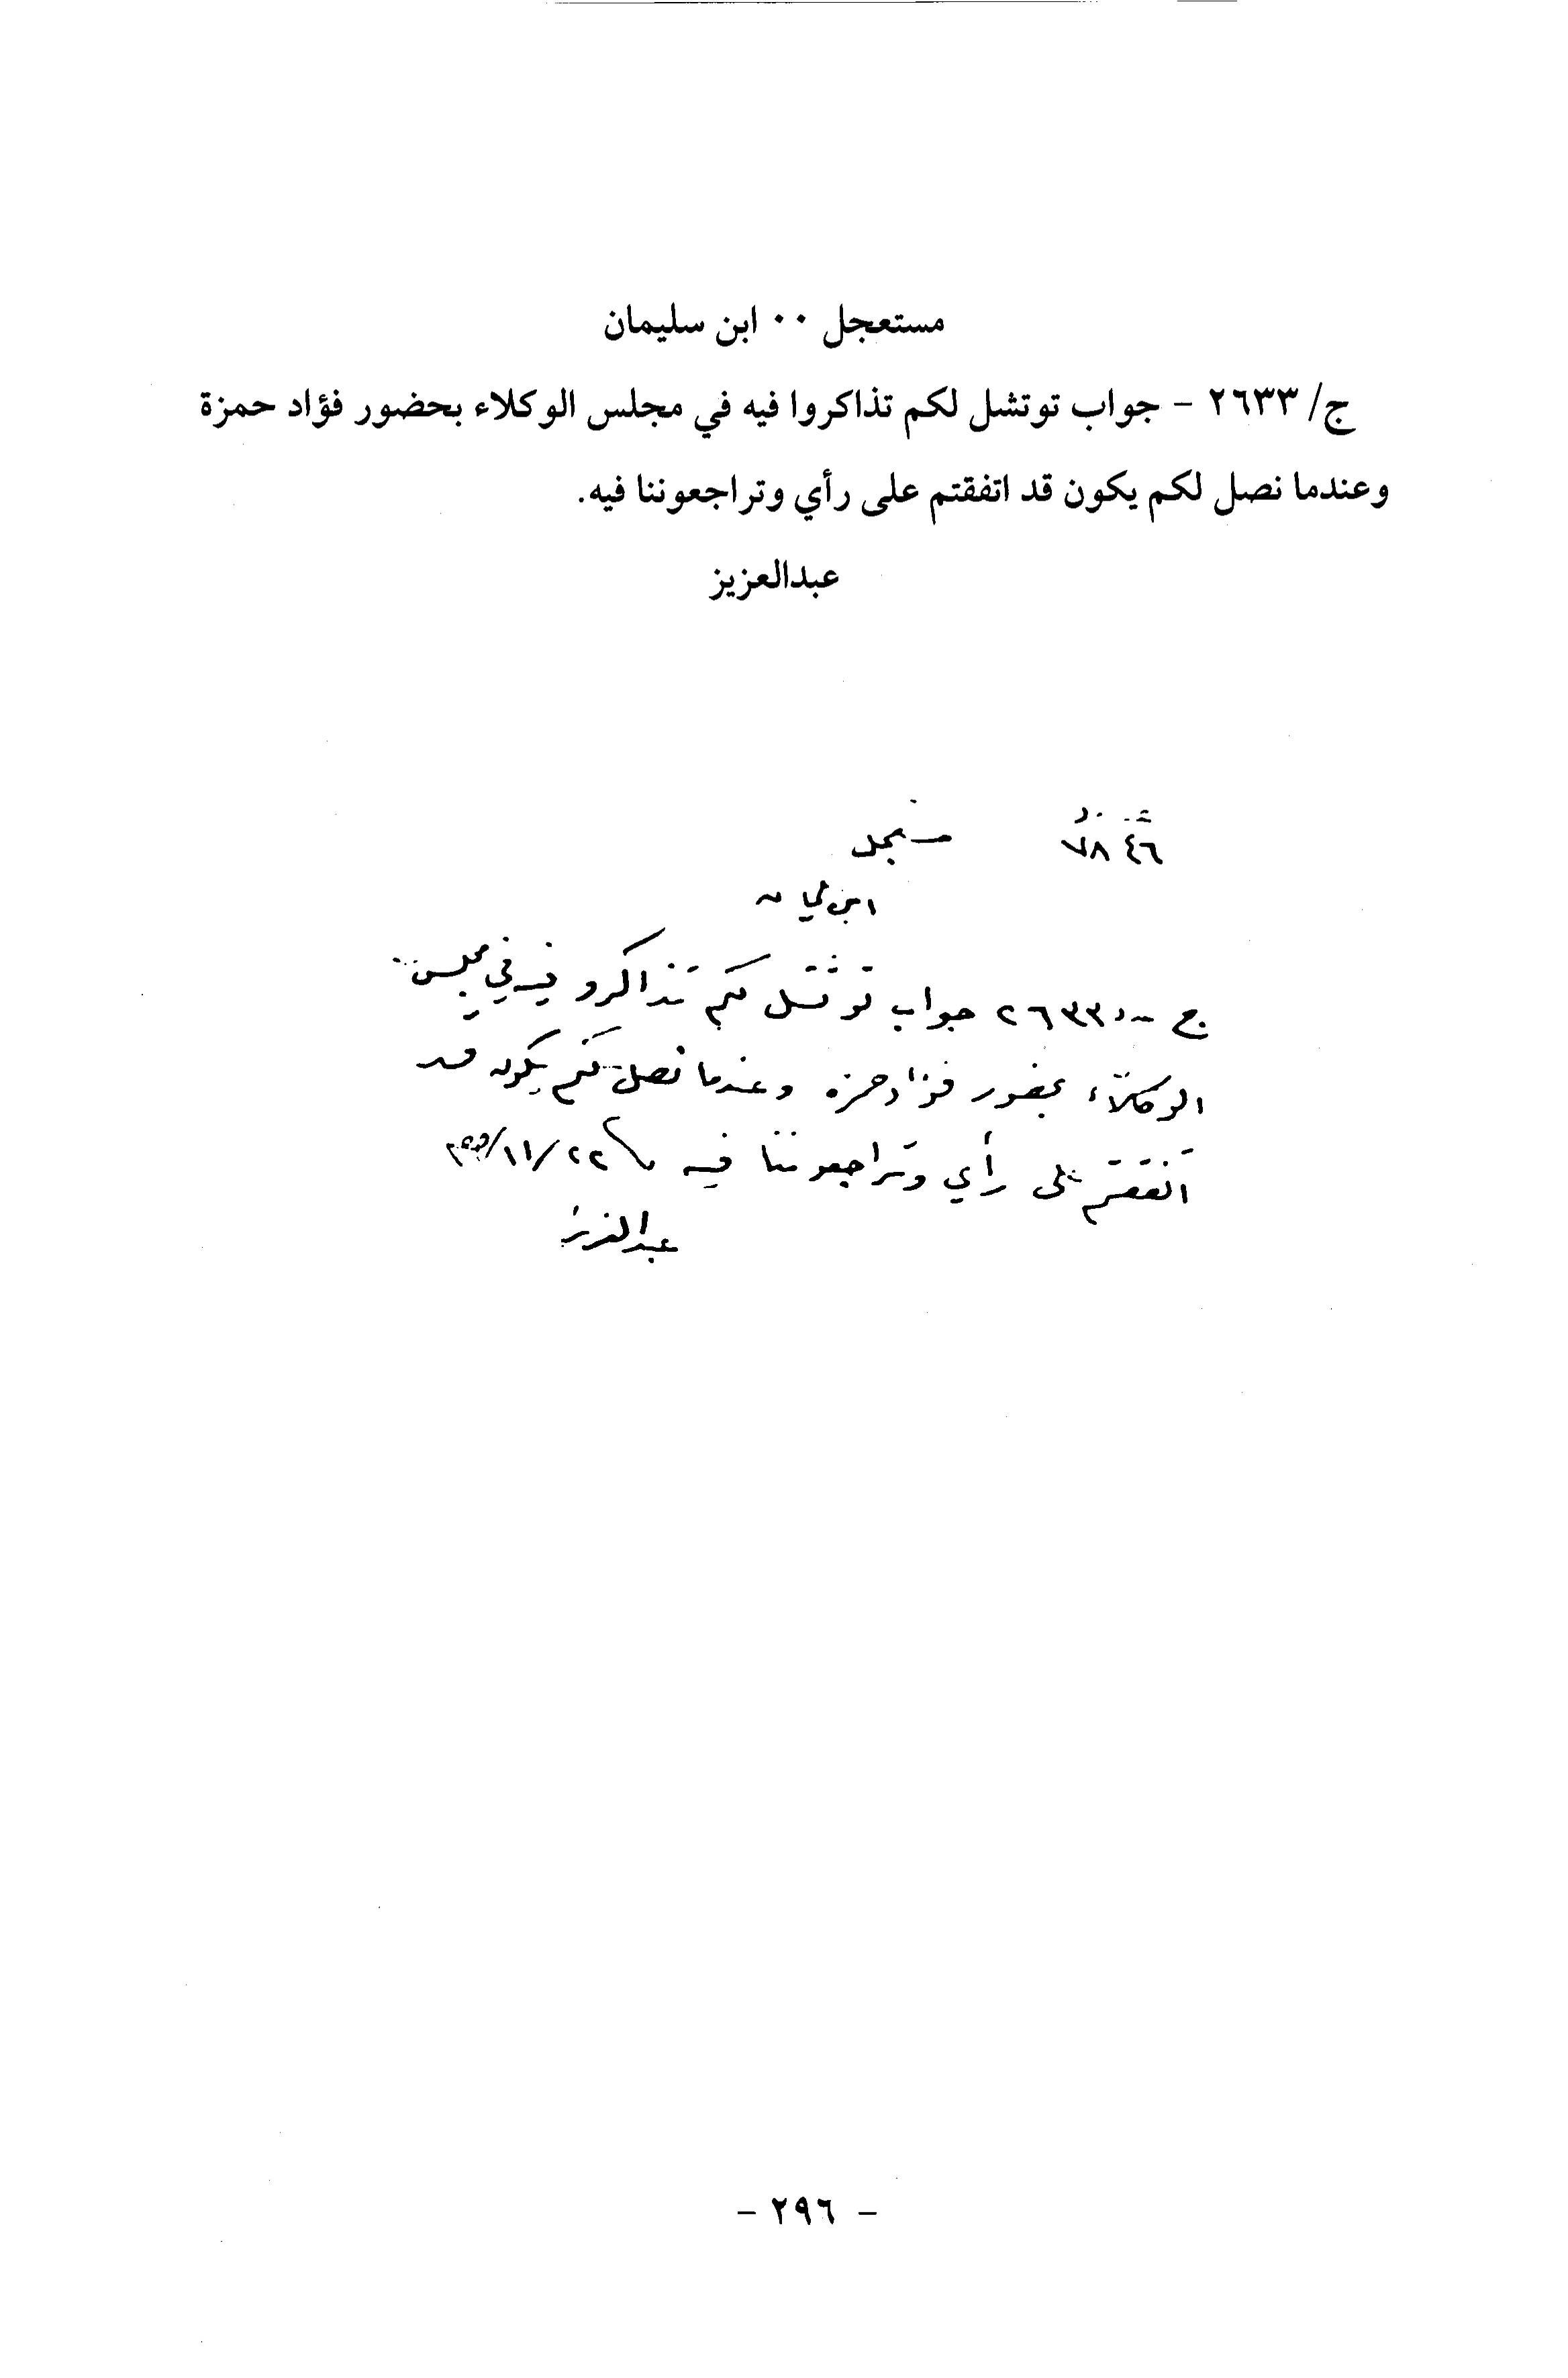 مستعجل ٠٠ ابن سليمان
ج/ ٢٦٣٣ - جواب توتشل لكم تذاكروا فيه في مجلس الوكلاء بحضور فؤاد حمزة
وعندما نصل لكم يكون قد اتفقتم على رأي وتراجعوننا فيه.
عبدالعزيز
مستعجل
ابن سليمان
ج ٢٦٣٣ جواب توتشل لكم تذاكرو فيه في مجلس
الوكلاء بحضور فؤاد حمزه وعندما نصل لكم يكون قد
اتفقتم على رأي وتراجعوننا فيه ٢٢/١١/
عبدالعزيز
- ٢٩٦ -